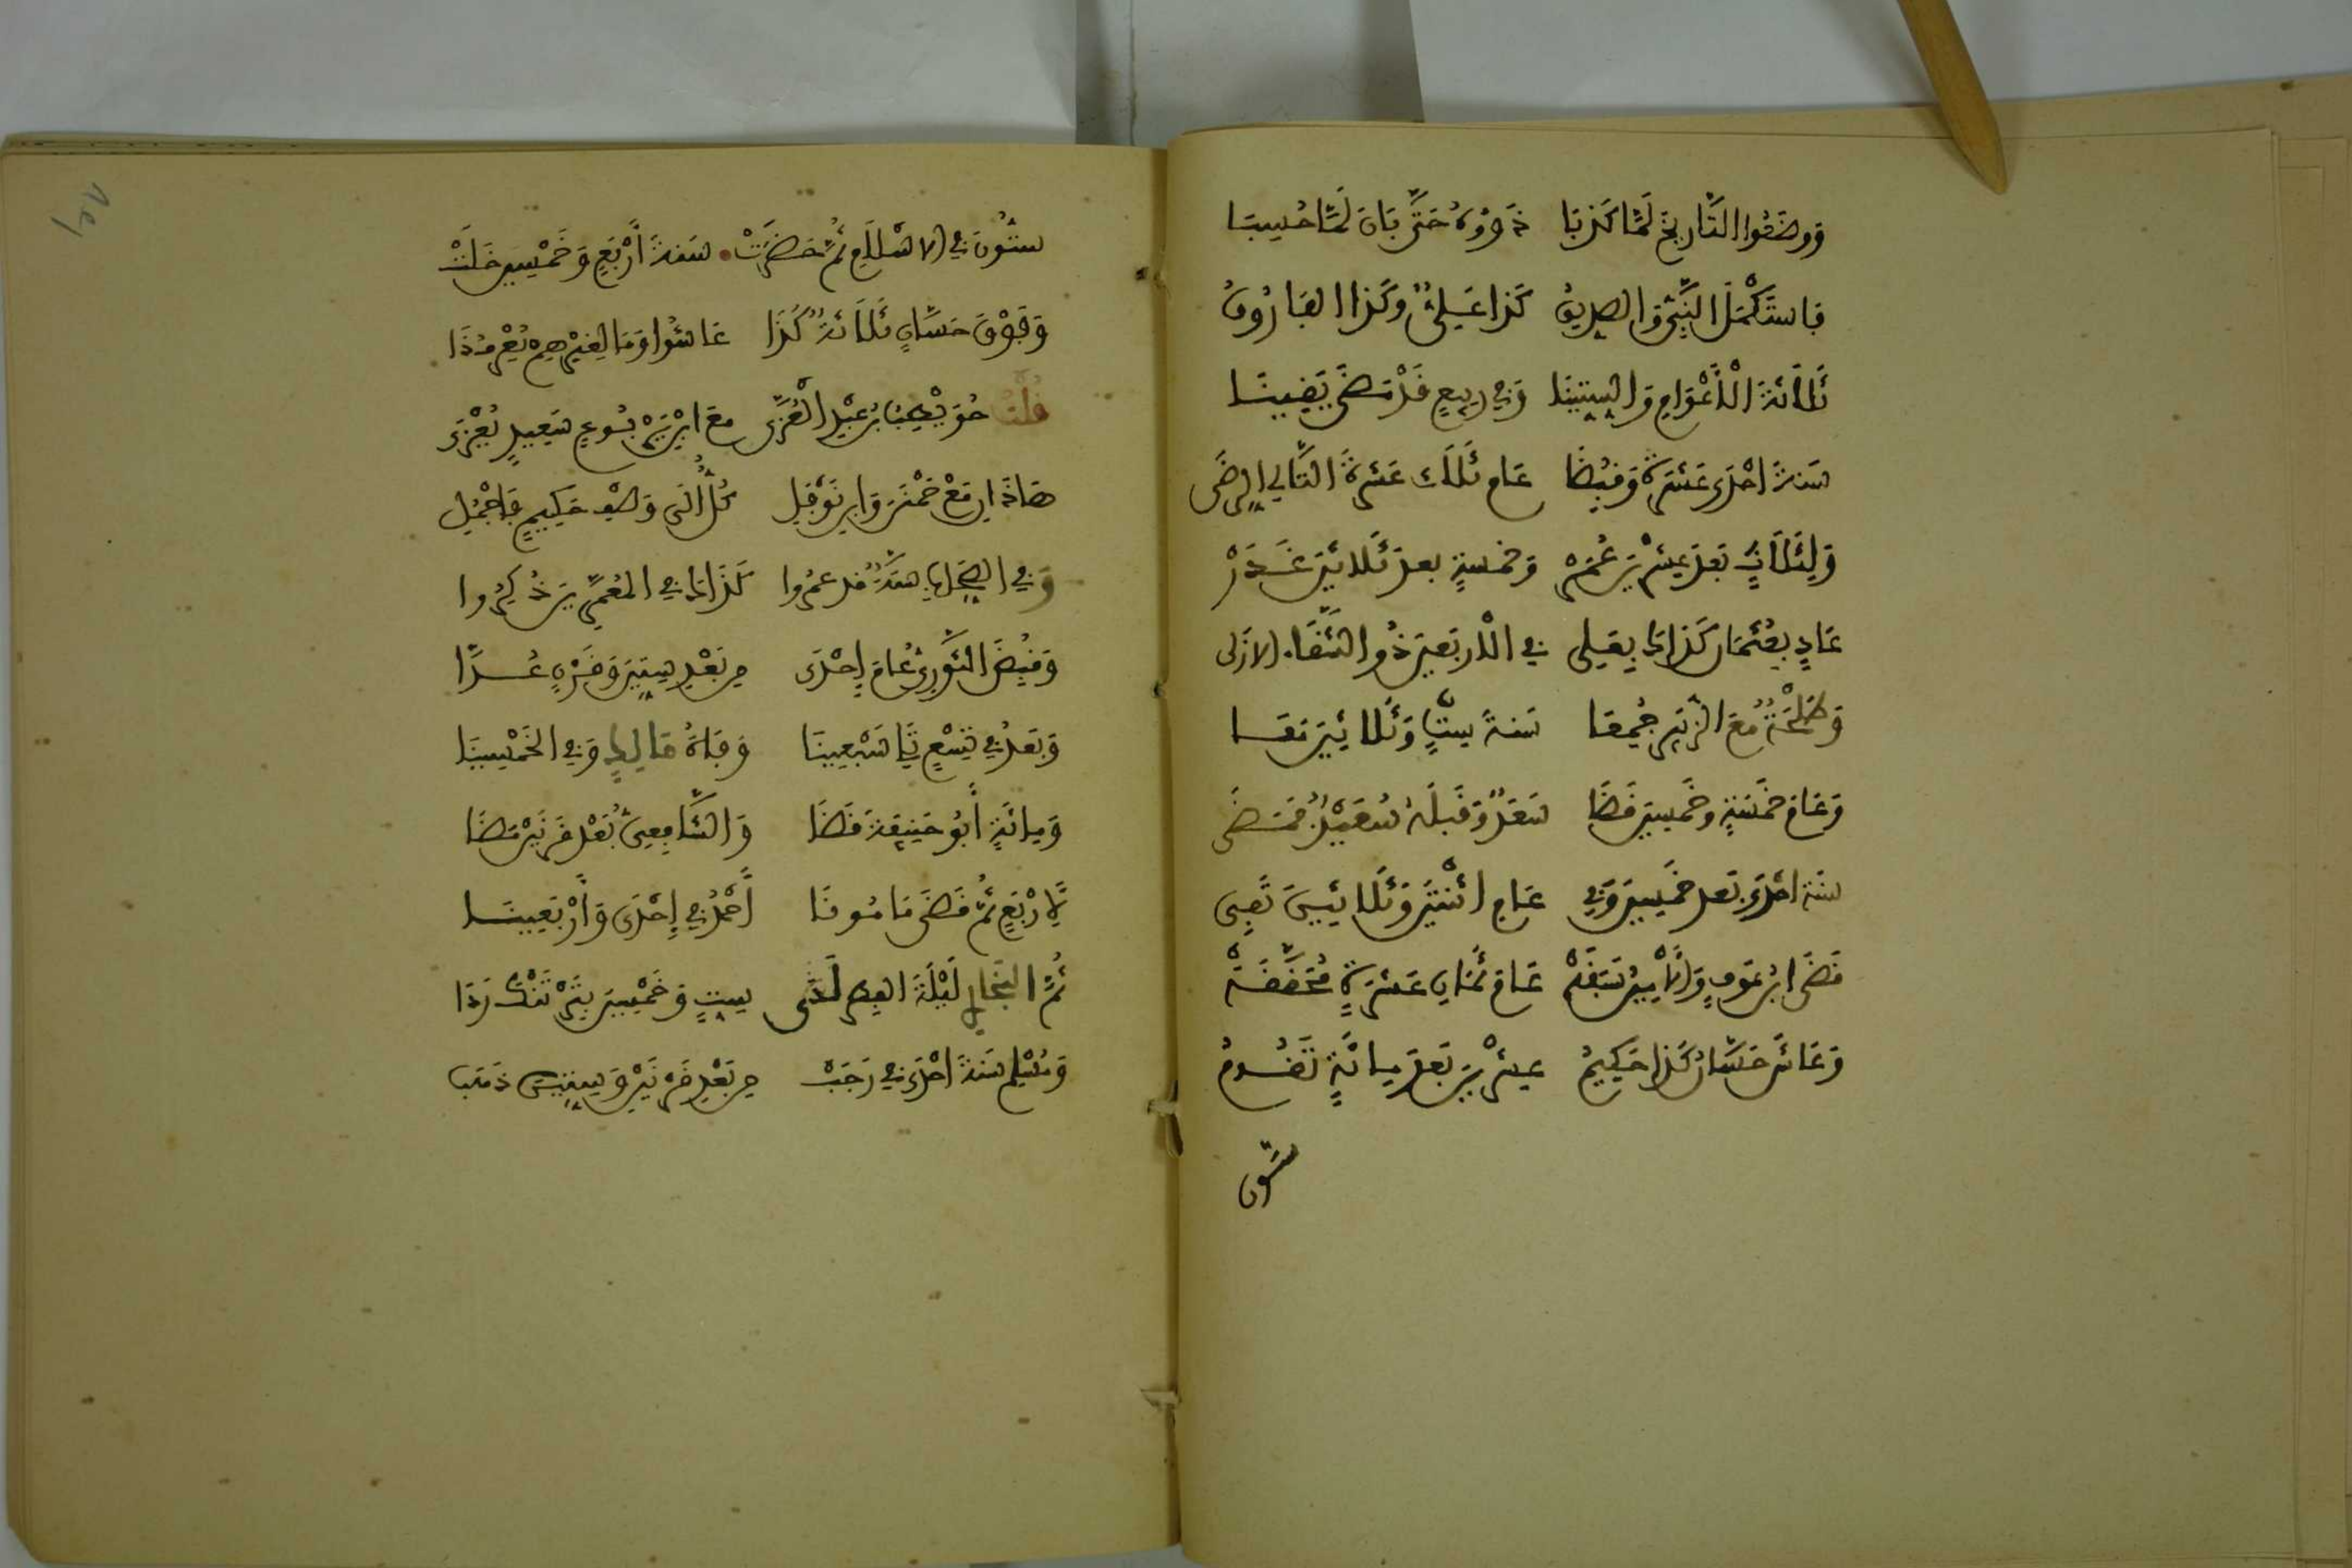 وَوَضَعُوا التَّارِيخَ لَمَّا كَذَبَا ذَوُوهُ حَتَّى بَانَ لَمَّا حُسِبَا
فَاسْتَكْمَلَ النَّبِيُّ وَالصِّدِّيقُ كَذَا عَلِيٌّ وَكَذَا الفَارُوقُ
ثَلَاثَةَ الْأَعْوَامِ وَالسِّتِّينَا وَفِي رَبِيعٍ قَدْ قَضَى يَقِينَا
سَنَةَ احْدَى عَشْرَةٍ وَقُبِضَا عَامَ ثَلَاثَ عَشْرَةَ التَّالِي الرِّضَى
وَلِثَلَاثٍ بَعْدَ عِشْرِينَ عُمَرْ وَخَمْسَةٍ بَعْدَ ثَلَاثِينَ غَدَرْ
عَادٍ بِعُثْمَانَ كَذَاكَ بِعَلِي فِي الْأَرْبَعِينَ ذُو الشَّقَاءِ الْأَزَلِي
وَطَلْحَةٌ مَعَ الزُّبَيْرِ جُمِعَا سَنَةَ سِتٍّ وَثَلَاثِينَ مَعَا
وَعَامَ خَمْسَةٍ وَخَمْسِينَ قَضَا سَعْدٌ وَقَبْلَهُ سَعِيدٌ فَمَضَى
سَنَةَ احْدَى بَعْدَ خَمْسِينَ وَفِي عَامِ اثْنَتَيْنِ وَثَلَاثِينَ تَفِي
قَضَى ابْنُ عَوْفٍ وَالْأَمِينُ سَبَقَهْ عَامَ ثَمَانِ عَشْرَةٍ مُحَقَّقَهْ
وَعَاشَ حَسَّانُ كَذَا حَكِيمُ عِشْرِينَ بَعْدَ مِائَةٍ تَقُومُ
ستون
سِتُّونَ فِي الْإِسْلَامِ ثُمَّ حَضَرَتْ سَنَةَ أَرْبَعٍ وَخَمْسِينَ خَلَتْ
وَفَوْقَ حَسَّانٍ ثَلَاثَةٌ كَذَا عَاشُوا وَمَا لِغَيْرِهِمْ يُعْرَفُ ذَا
قُلْتُ حُوَيْطِبُ بْنُ عَبْدِ الْعُزَّى مَعَ ابْنِ يَرْبُوعٍ سَعِيدٍ يُعْزَى
هَاذَانِ مَعْ حَمْنَنَ وَابْنِ نَوْفَلِ كُلٌّ إِلَى وَصْفِ حَكِيمٍ فَاجْمُلِ
وَفِي الصِّحَابِ سِتَّةٌ قَدْ عُمِّرُوا كَذَاكَ فِي الْمُعَمَّرِينَ ذُكِرُوا
وَقُبِضَ الثَّوْرِيُّ عَامَ إِحْدَى مِنْ بَعْدِ سِتِّينَ وَقَرْنٍ عُدَّا
وَبَعْدُ فِي تِسْعٍ تَلِي سَبْعِينَا وَفَاةُ مَالِكٍ وَفِي الْخَمْسِينَا
وَمِائَةٍ أَبُو حَنِيفَةَ قَضَا وَالشَّافِعِيُّ بَعْدَ قَرْنَيْنِ مَضَا
لِأَرْبَعٍ ثُمَّ قَضَى مَأْمُونَا أَحْمَدُ فِي إِحْدَى وَأَرْبَعِينَا
ثُمَّ الْبُخَارِي لَيْلَةَ الْفِطْرِ لَدَى سِتٍّ وَخَمْسِينَ بِخَرْتَنْكَ رَدَا
وَمُسْلِمٌ سَنَةَ احْدَى فِي رَجَبْ مِنْ بَعْدِ قَرْنَيْنِ وَسِتِّينَ ذَهَبْ